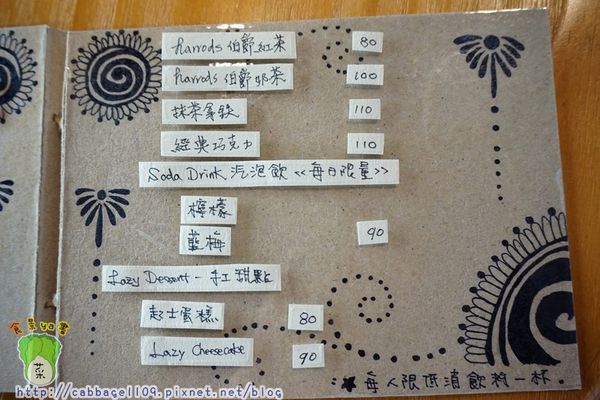 harrods 伯爵紅茶 80
harrods 伯爵奶茶 100
抹茶拿鐵 110
經典巧克力 110
Soda Drink 汽泡飲 <<每日限量>>
檸檬
藍梅 90
Lazy Dessert - 手工甜點
起士蛋糕 80
Lazy Cheesecake 90
★ 每人限低消飲料一杯
食尋四書
菜
http://cabbage1109.pixnet.net/blog